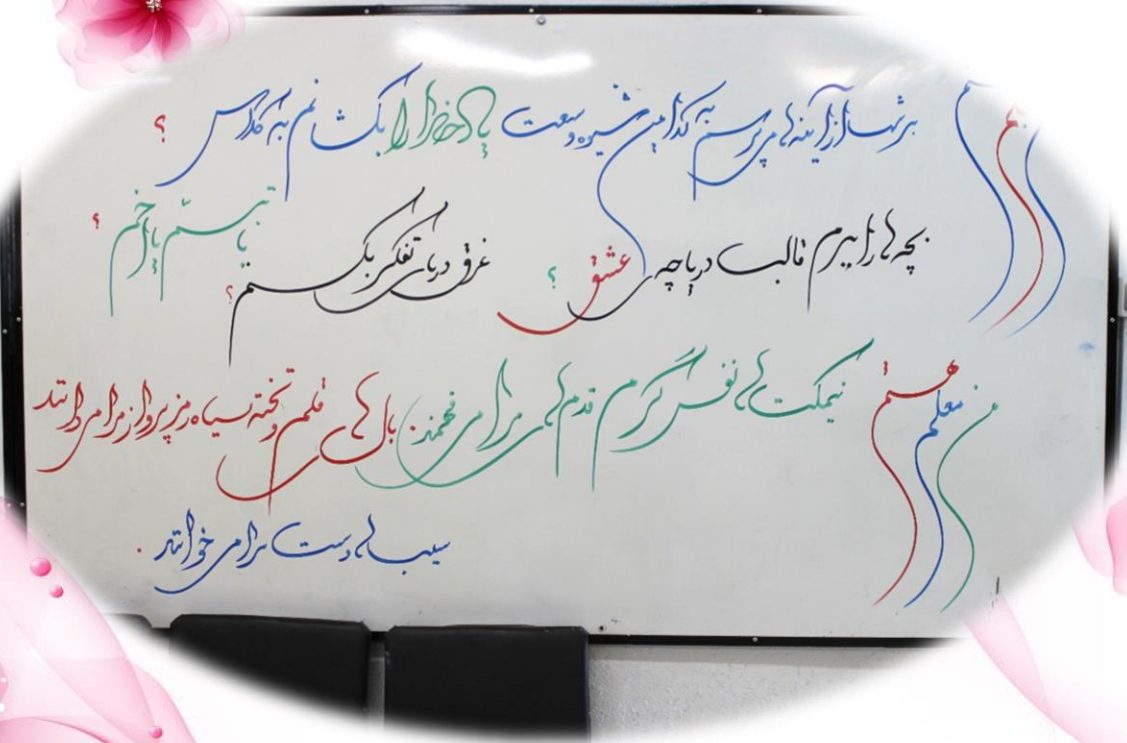 هر شب از آینه ها می پرسم به کدامین شیوه وسعت یاد خدا را بکشانم به کلاس ؟
بچه ها را ببرم تا لب دریاچه عشق ؟ غرق دریای تفکر بکنم ؟ با تبسّم یا اخم ؟
من معلم هستم نیمکت ها نفس گرم قدم های مرا می فهمند بال های قلم و تخته سیاه رمز پرواز مرا می دانند
سیب ها دست مرا می خوانند .